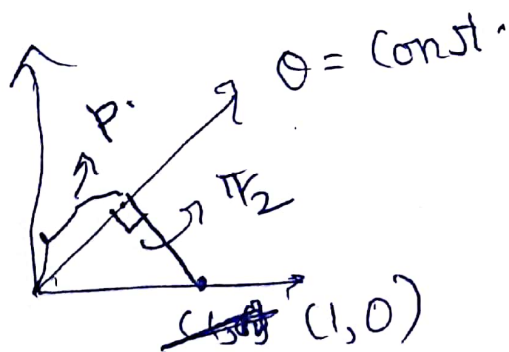 θ = Const.
P.
π/2
(1,0)